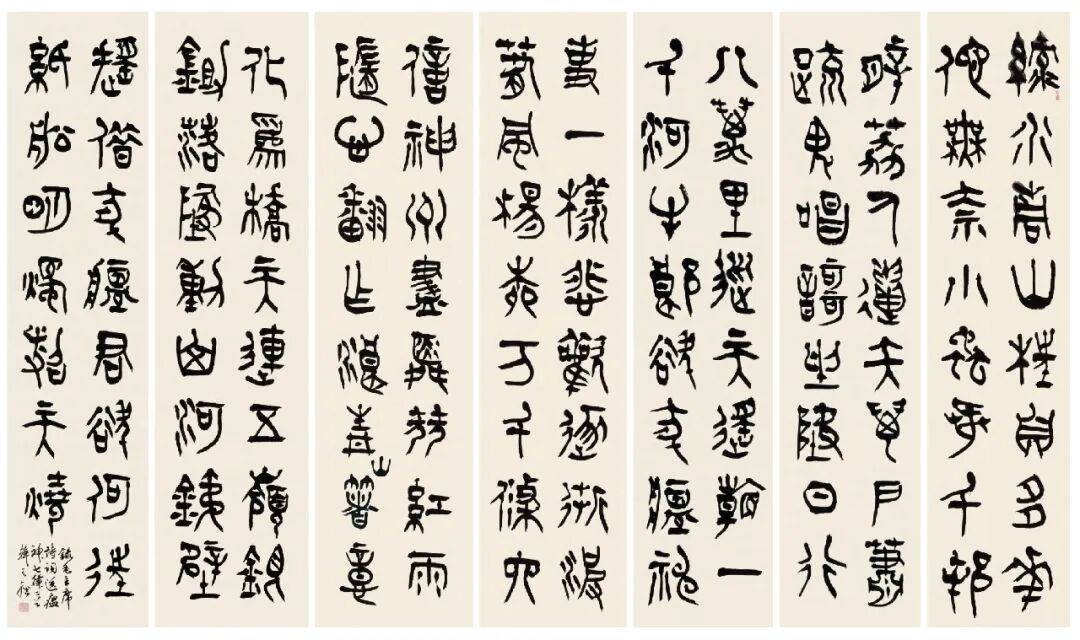 綠水青山枉自多華
佗無奈小蟲何千邨
薜荔人遺矢萬戶蕭
疏鬼唱謌坐地日行
八萬里巡天遙看一
千河牛郎欲問瘟神
事一樣悲歡逐逝波
春風楊柳万千條六
億神州盡舜堯紅雨
隨心翻作浪青山著意
化為橋天連五嶺銀
鋤落地動山河鐵臂
搖借問瘟君欲何往
紙船明燭照天燒
錄毛主席
詩詞送瘟
神七律二首